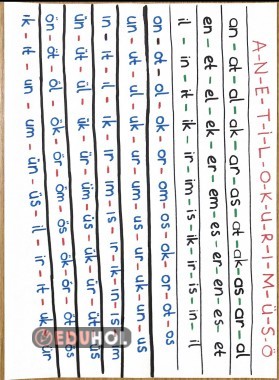 A-N-E-T-İ-L-O-K-U-R-I-M-Ü-S-Ö
an - at - al - ak - ar - as - at - ak - as - ar - al
en - et - el - ek - er - em - es - er - en - es - et
il - in - it - ik - ir - im - is - ik - ir - is - in - il
on - ot - ol - ok - or - om - os - ok - or - ot - os
un - ut - ul - uk - ur - um - us - ur - uk - un - us
ın - ıt - ıl - ık - ır - ım - ıs - ır - ık - ın - ıs - ım
ün - üt - ül - ük - ür - üm - üs - ük - ür - üt
ön - öt - öl - ök - ör - öm - ös - ök - ör - ös
ik - it - un - um - ün - üs - il - ır - it - uk - ür
EDUHOL